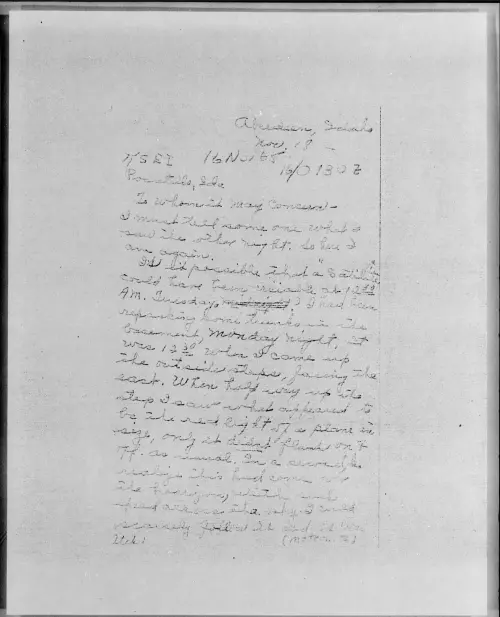 Aberdeen, Idaho
Nov. 18 -
KSEI 16 Nov 65
16/0730Z
Pocatello, Ida
To whom it May Concern -
I must tell some one what I
saw the other night. So here I
am again.
Is it possible that a "Satilite"
could have been visiable at 12:30
AM. Tuesday, midnight? I had been
repacking some trunks in the
basement Monday night, it
was 12:30 when I came up
the outside steps, facing the
east. When half way up the
step I saw what appeared to
be the red light of a plane in
size, only it didnt flash on &
off as usual. In a second to
realize this had come
the horizon, with
speed across the sky I could
scarcely follow it and